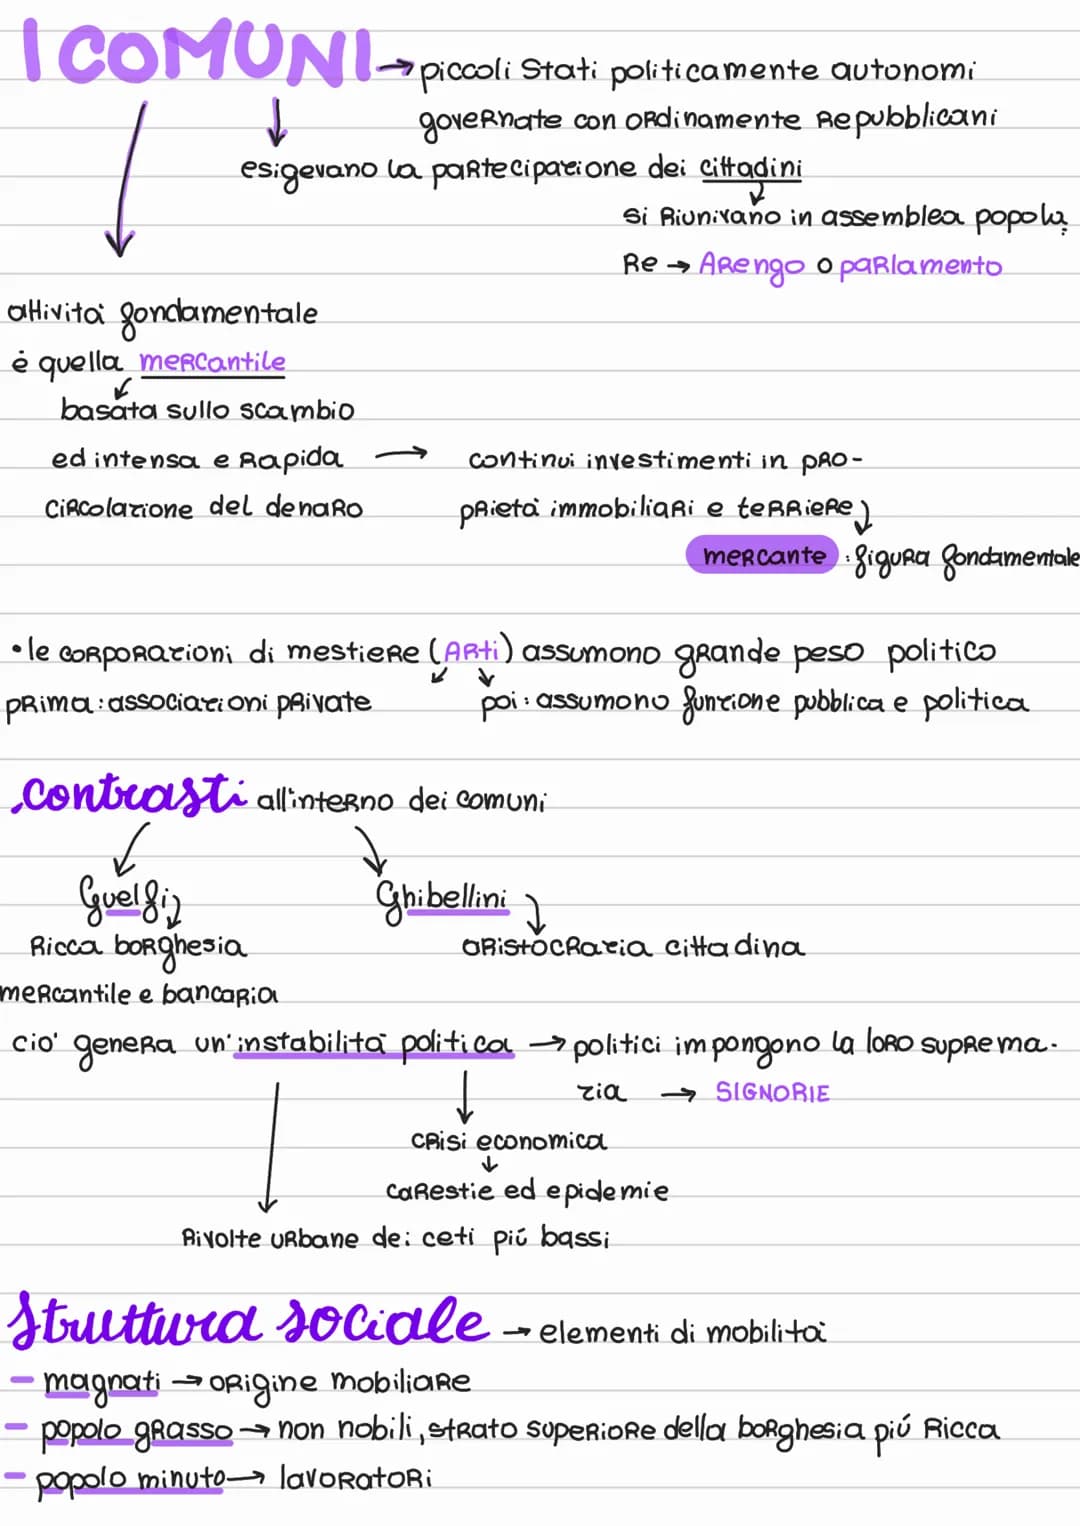 I COMUNI → piccoli Stati politicamente autonomi
governate con ordinamente repubblicani
esigevano la partecipazione dei cittadini
si riunivano in assemblea popola
re → Arengo o parlamento
attività fondamentale
è quella mercantile
basata sullo scambio
ed intensa e rapida → continui investimenti in pro-
circolazione del denaro prietà immobiliari e terriere
mercante : figura fondamentale
• le corporazioni di mestiere (Arti) assumono grande peso politico
prima: associazioni private poi: assumono funzione pubblica e politica
contrasti all'interno dei comuni
Guelfi Ghibellini
Ricca borghesia aristocrazia cittadina
mercantile e bancaria
cio' genera un'instabilità politica → politici impongono la loro suprema-
zia → SIGNORIE
crisi economica
carestie ed epidemie
Rivolte urbane dei ceti più bassi
Struttura sociale → elementi di mobilità
- magnati → origine mobiliare
- popolo grasso → non nobili, strato superiore della borghesia più ricca
- popolo minuto → lavoratori